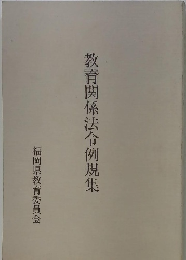 教育関係法令例規集
福岡県教育委員会